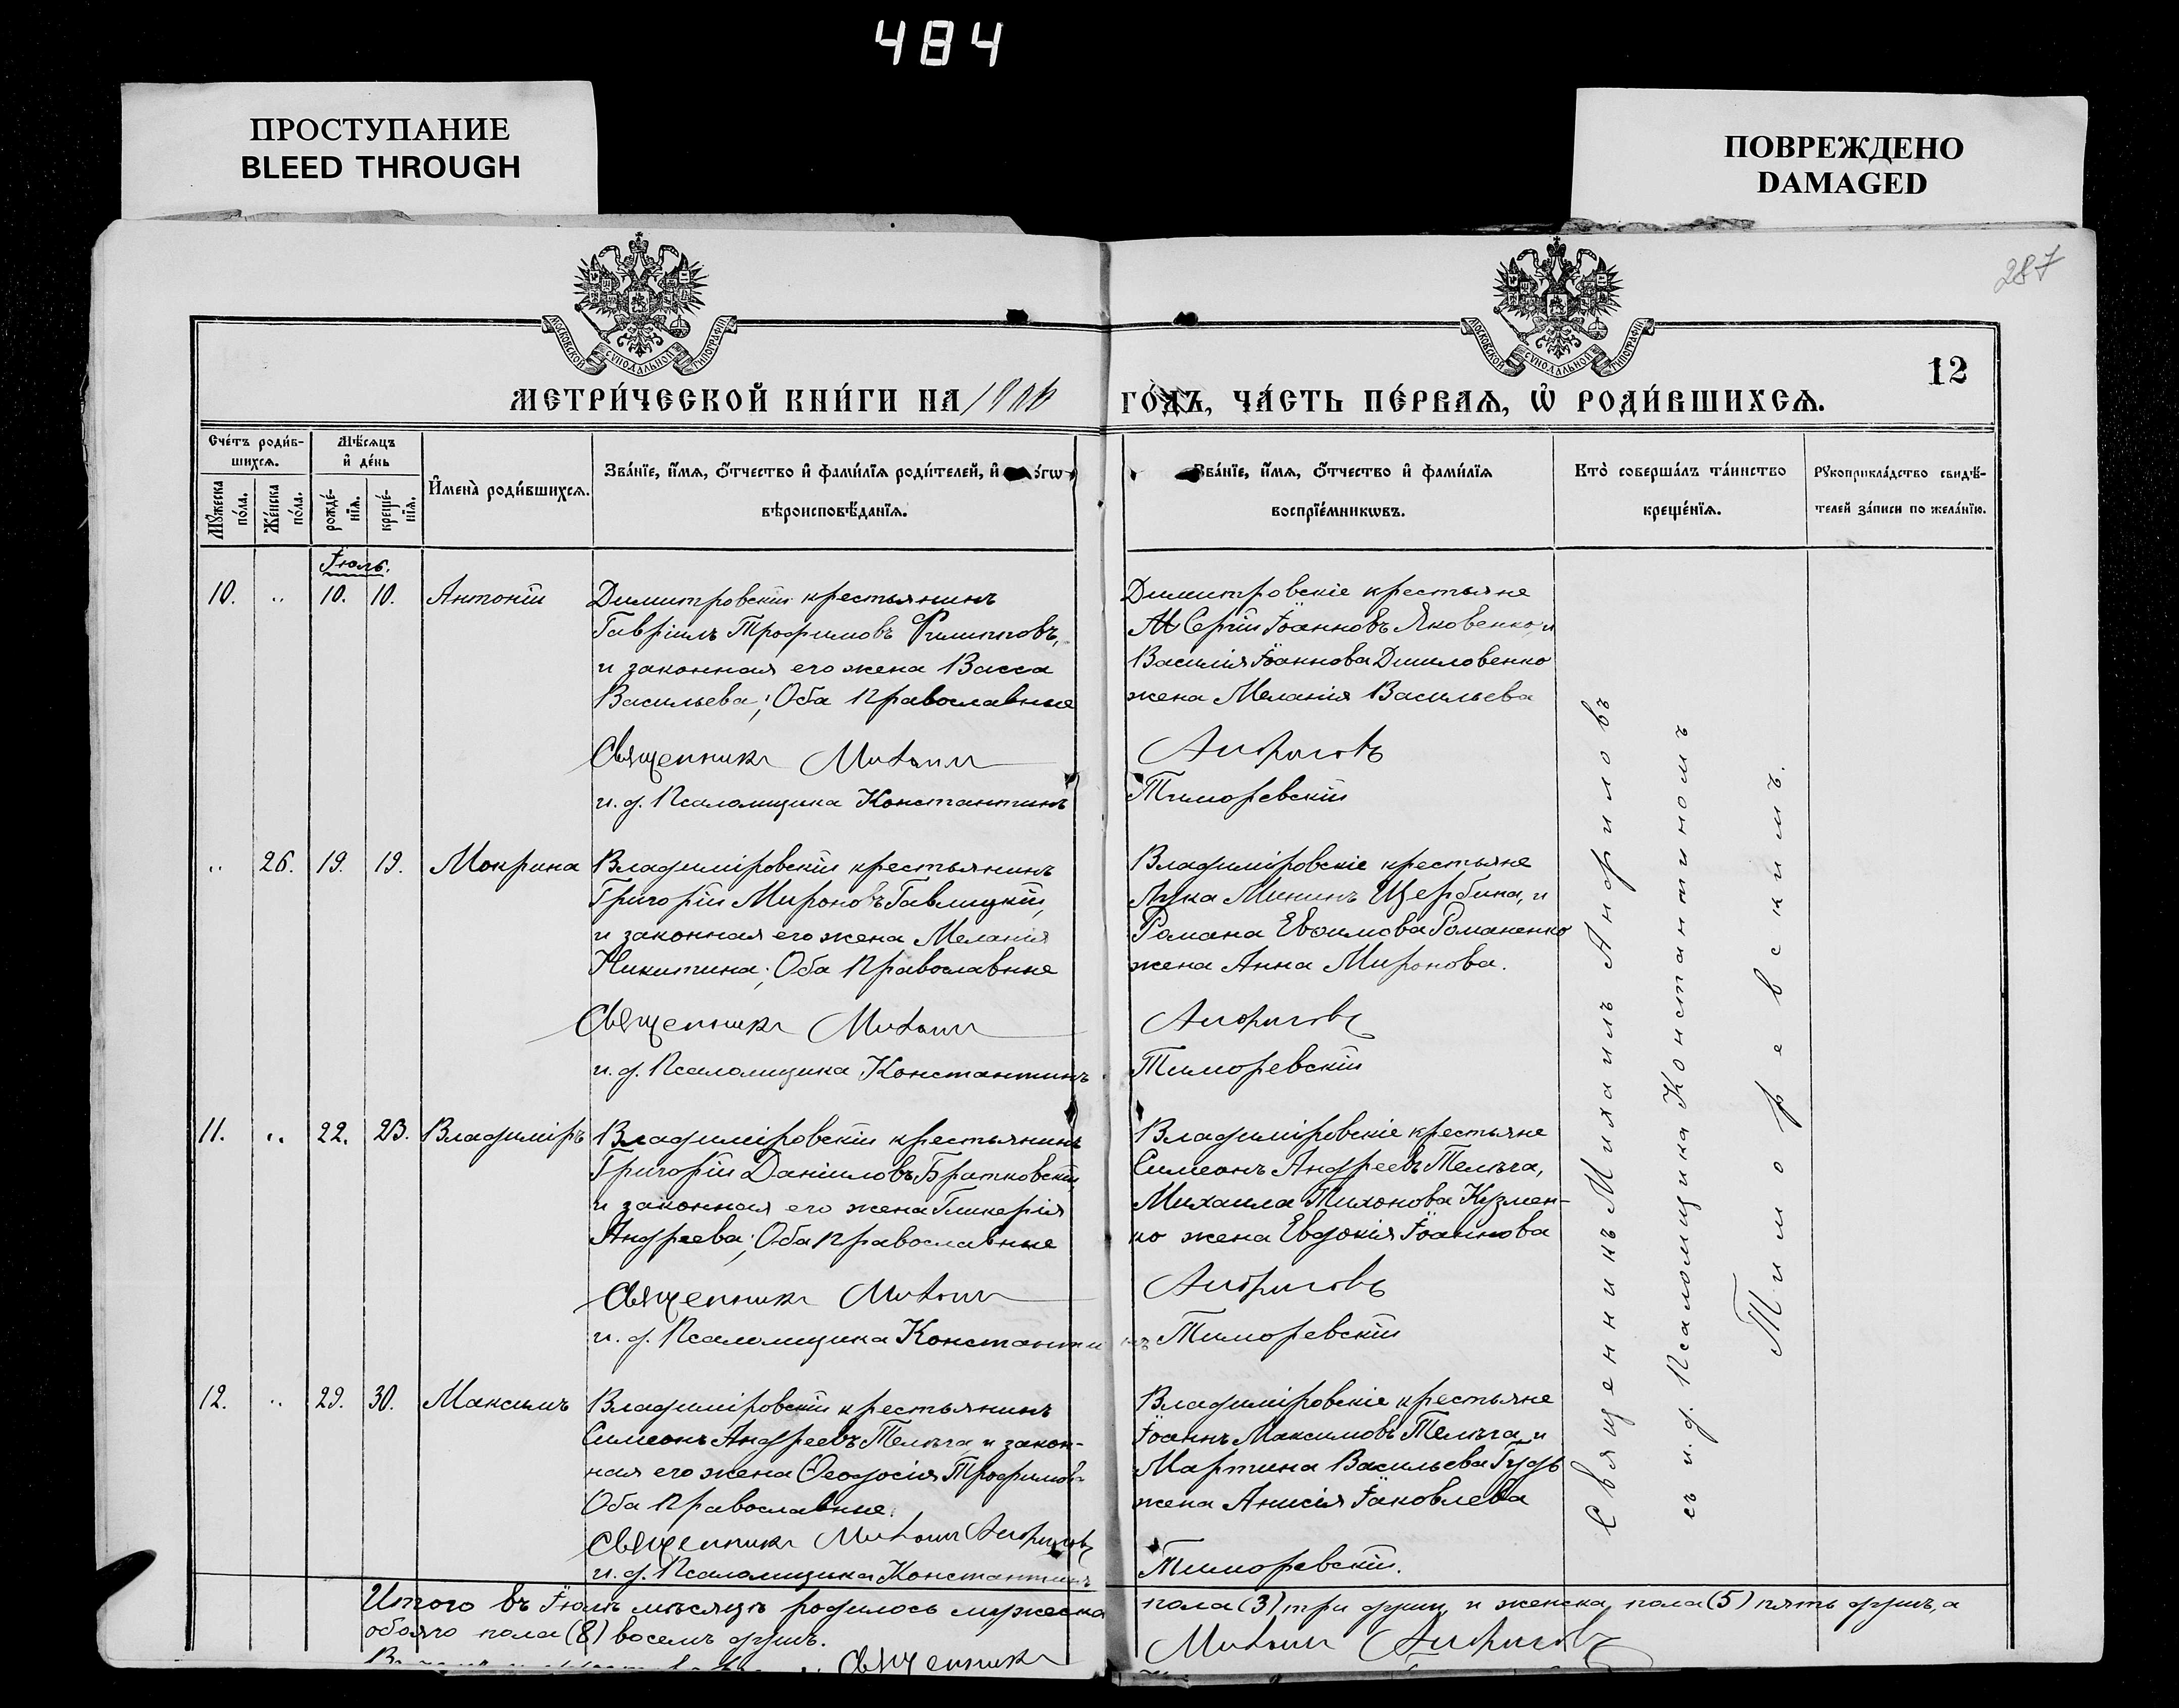 484
ПРОСТУПАНИЕ
BLEED THROUGH
ПОВРЕЖДЕНО
DAMAGED
287
МОСКОВСКОЙ СУНОДАЛЬНОЙ ТИПОГРАФІИ
МОСКОВСКОЙ СУНОДАЛЬНОЙ ТИПОГРАФІИ
12
МЕТРИ́ЧЕСКОЙ КНИ́ГИ НА
ГО́ДЪ, ЧА́СТЬ ПЕ́РВАѦ, Ѡ҆ РОДИ́ВШИХСѦ.
Сче́тъ роди́в-
шихсѧ.
Мꙋ́жеска по́ла.
Же́нска по́ла.
Мѣ́сѧцъ
и҆ де́нь
рожде́-
нїѧ.
креще́-
нїѧ.
И҆мена̀ роди́вшихсѧ.
Зва́нїе, и҆́мѧ, ѻ҆́тчество и҆ фами́лїѧ роди́телей, и҆
вѣроисповѣ́данїѧ.
Зва́нїе, и҆́мѧ, ѻ҆́тчество и҆ фами́лїѧ
воспрїе́мникѡвъ.
Кто̀ соверша́лъ та́инство
креще́нїѧ.
Рꙋкоприкла́дство свидѣ́-
телей за́писи по жела́нїю.
Іюль.
10. „ 10. 10. Антоній
Димитровскій крестьянинъ
Гавріилъ Трофимовъ Филипповъ,
и законная его жена Васса
Васильева; Оба Православные
Священникъ Михаилъ
и. д. Псаломщика Константинъ
Димитровскіе крестьяне
Сергій Іоанновъ Яковенко, и
Василія Іоаннова
жена Меланія Васильева
Анфиловъ
Тиморевскій
„ 26. 19. 19. Мокрина
Владиміровскій крестьянинъ
Григорій Мироновъ Гавлицкій,
и законная его жена Меланія
Никитина; Оба Православные
Священникъ Михаилъ
и. д. Псаломщика Константинъ
Владиміровскіе крестьяне
Лука Мининъ Щербина, и
Романа Евѳимова Романенко
жена Анна Миронова.
Анфиловъ
Тиморевскій
11. „ 22. 23. Владиміръ
Владиміровскій крестьянинъ
Григорій Даніиловъ Братковскій,
и законная его жена Гликерія
Андреева; Оба Православные
Священникъ Михаилъ
и. д. Псаломщика Константинъ
Владиміровскіе крестьяне
Симеонъ Андреевъ Телѣга,
Михаила Тихонова Кузмен-
ко жена Евдокія Іоаннова
Анфиловъ
Тиморевскій
12. „ 29. 30. Максимъ
Владиміровскій крестьянинъ
Симеонъ Андреевъ Телѣга, и закон-
ная его жена Ѳеодосія Трофимов.
Оба Православные.
Священникъ Михаилъ Анфиловъ
и. д. Псаломщика Константинъ
Владиміровскіе крестьяне
Іоаннъ Максимовъ Телѣга, и
Мартина Васильева Гудь
жена Анисія Іаковлева
Тиморевскій.
Священникъ Михаилъ Анфиловъ
съ и. д. Псаломщика Константиномъ
Тиморевскимъ.
Итого въ Іюлѣ мѣсяцѣ родилось мужеска
пола (3) три души, и женска пола (5) пять душъ, а
обоего пола (8) восемь душъ.
Священникъ
Михаилъ Анфиловъ